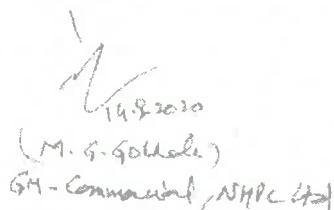 14.9.2020
(M. G. Gokhale)
GM-Commercial, NHPC Ltd